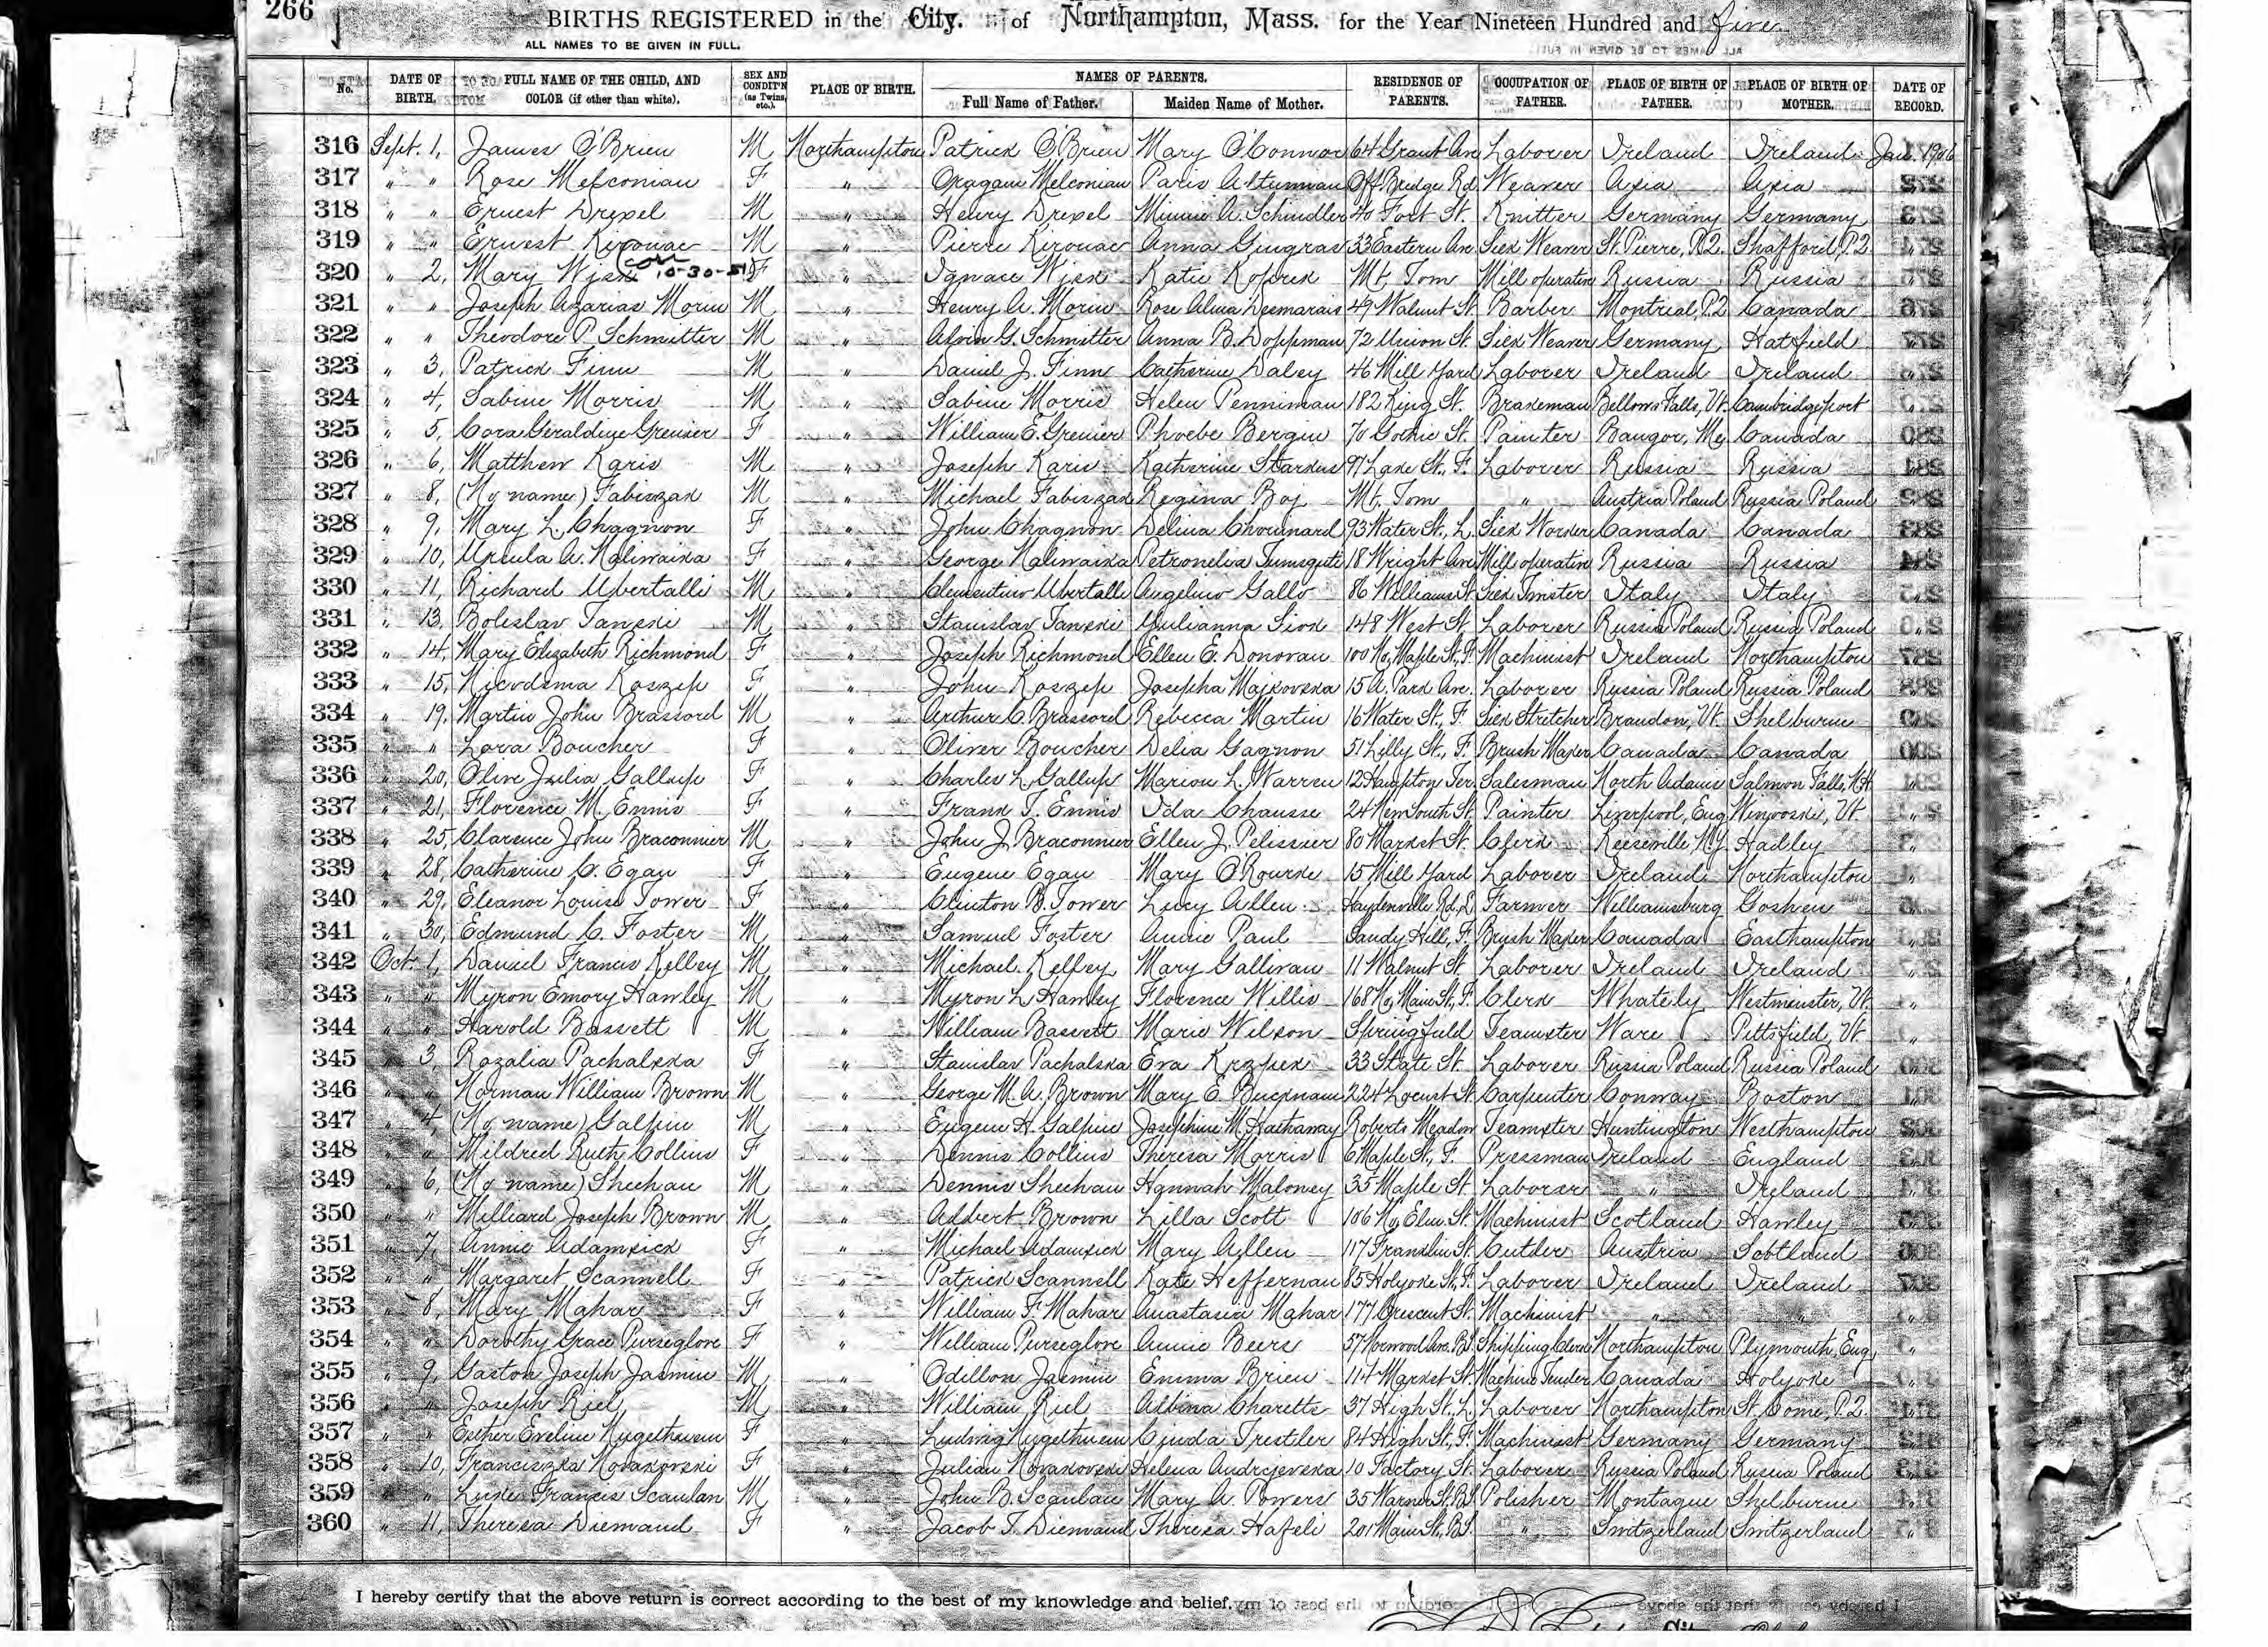 266
BIRTHS REGISTERED in the City. of Northampton, Mass. for the Year Nineteen Hundred and five.
ALL NAMES TO BE GIVEN IN FULL.
No. DATE OF BIRTH. FULL NAME OF THE CHILD, AND COLOR (if other than white). SEX AND CONDIT'N (as Twins, etc.). PLACE OF BIRTH. NAMES OF PARENTS. Full Name of Father. Maiden Name of Mother. RESIDENCE OF PARENTS. OCCUPATION OF FATHER. PLACE OF BIRTH OF FATHER. PLACE OF BIRTH OF MOTHER. DATE OF RECORD.
316 Sept. 1, James O'Brien M Northampton Patrick O'Brien Mary O'Connor 64 Grant Ave Laborer Ireland Ireland Jan. 1906
317 " " Rose Melconian F " Melconian Paris Off Bridge Rd. Weaver Asia Asia "
318 " " Ernest Drexel M " Henry Drexel Minnie A. Schindler 40 Fort St. Knitter Germany Germany "
319 " " Ernest Kirouac M " Pierre Kirouac Anna Gingras 33 Eastern Ave. Silk Weaver St. Pierre, P.Q. Shafford, P.Q. "
320 " 2, Mary Wisk 10-30-51 F " Ignace Wisk Katie Koprek Mt. Tom Mill operative Russia Russia "
321 " " Joseph Azarias Morin M " Henry A. Morin Rose Alma Desmarais 49 Walnut St. Barber Montreal, P.Q. Canada "
322 " " Theodore P. Schmitter M " Alvin G. Schmitter Anna B. Doppman 72 Union St. Silk Weaver Germany Hatfield "
323 " 3, Patrick Finn M " Daniel J. Finn Catherine Daley 46 Mill Yard Laborer Ireland Ireland "
324 " 4, Sabine Morris M " Sabine Morris Helen Penniman 182 King St. Brakeman Bellows Falls, Vt. Cambridgeport "
325 " 5, Cora Geraldine Grenier F " William E. Grenier Phoebe Bergin 70 Gothic St. Painter Bangor, Me. Canada "
326 " 6, Matthew Karis M " Joseph Karis Katherine Stardus 97 Lake St., F. Laborer Russia Russia "
327 " 8, (No name) Fabiszak M " Michael Fabiszak Regina Boj Mt. Tom " Austria Poland Russia Poland "
328 " 9, Mary L. Chagnon F " John Chagnon Delina Chouinard 93 Water St., L. Silk Worker Canada Canada "
329 " 10, Ursula A. Kaliwaika F " George Kaliwaika Petronelia 18 Wright Ave Mill operative Russia Russia "
330 " 11, Richard Ubertalli M " Clementino Ubertalli Angelino Gallo 86 Williams St. Silk Twister Italy Italy "
331 " 13, Boleslav Tanski M " Stanislav Tanski Yulianna Siok 148 West St. Laborer Russia Poland Russia Poland "
332 " 14, Mary Elizabeth Richmond F " Joseph Richmond Ellen E. Donovan 100 No. Maple St., F. Machinist Ireland Northampton "
333 " 15, Nicodema Koszep F " John Koszep Josepha Majkovska 15 A. Park Ave. Laborer Russia Poland Russia Poland "
334 " 19, Martin John Brassord M " Arthur C. Brassord Rebecca Martin 16 Water St., F. Silk Stretcher Brandon, Vt. Shelburne "
335 " " Lora Boucher F " Oliver Boucher Delia Gagnon 51 Lilly St., F. Brush Maker Canada Canada "
336 " 20, Olive Julia Gallup F " Charles L. Gallup Marion L. Warren 12 Hampton Ter. Salesman North Adams Salmon Falls, N.H. "
337 " 21, Florence M. Ennis F " Frank T. Ennis Ida Chausse 24 New South St. Painter Liverpool, Eng. Winooski, Vt. "
338 " 25, Clarence John Braconnier M " John J. Braconnier Ellen J. Pelissier 80 Market St. Clerk Keeseville, N.Y. Hadley "
339 " 28, Catherine C. Egan F " Eugene Egan Mary O'Rourke 15 Mill Yard Laborer Ireland Northampton "
340 " 29, Eleanor Louise Tower F " Clinton B. Tower Lucy Allen Haydenville Rd., L. Farmer Williamsburg Goshen "
341 " 30, Edmund C. Foster M " Samuel Foster Annie Paul Sandy Hill, F. Brush Maker Canada Easthampton "
342 Oct. 1, Daniel Francis Kelley M " Michael Kelley Mary Gallivan 11 Walnut St. Laborer Ireland Ireland "
343 " " Myron Emory Hawley M " Myron L. Hawley Florence Willis 168 No. Main St., F. Clerk Whately Westminster, Vt. "
344 " " Harold Bassett M " William Bassett Marie Wilson Springfield Teamster Ware Pittsfield, Vt. "
345 " 3, Rozalia Pachalska F " Stanislav Pachalska Eva Krzpek 33 State St. Laborer Russia Poland Russia Poland "
346 " " Norman William Brown M " George M. A. Brown Mary E. Bucknam 224 Locust St. Carpenter Conway Boston "
347 " 4, (No name) Galpin M " Eugene H. Galpin Josephine M. Hathaway Roberts Meadow Teamster Huntington Westhampton "
348 " " Mildred Ruth Collins F " Dennis Collins Theresa Morris 6 Maple St., F. Pressman Ireland England "
349 " 6, (No name) Sheehan M " Dennis Sheehan Hannah Maloney 35 Maple St. Laborer " Ireland "
350 " " Milliard Joseph Brown M " Adbert Brown Lilla Scott 106 No. Elm St. Machinist Scotland Hawley "
351 " 7, Annie Adamsick F " Michael Adamsick Mary Allen 117 Franklin St. Cutler Austria Scotland "
352 " " Margaret Scannell F " Patrick Scannell Kate Heffernan 85 Holyoke St., F. Laborer Ireland Ireland "
353 " 8, Mary Mahar F " William F. Mahar Anastasia Mahar 177 Crescent St. Machinist " " "
354 " " Dorothy Grace Purseglove F " William Purseglove Annie Beers 57 Norwood Ave. B.S. Shipping Clerk Northampton Plymouth, Eng. "
355 " 9, Gaston Joseph Jasmin M " Odillon Jasmin Emma Brien 114 Market St. Machine Tender Canada Holyoke "
356 " " Joseph Riel M " William Riel Albina Charette 37 High St. L. Laborer Northampton St. Come, P.Q. "
357 " " Esther Eveline Kugethuem F " Ludwig Kugethuem Trestler 84 High St., F. Machinist Germany Germany "
358 " 10, Franciszka Novakovski F " Julian Novakovski Helena Andrejevska 10 Factory St. Laborer Russia Poland Russia Poland "
359 " " Luke Francis Scanlan M " John B. Scanlan Mary A. Powers 35 Warner St. B.S. Polisher Montague Shelburne "
360 " 11, Theresa Diemand F " Jacob T. Diemand Theresa Hafeli 201 Main St., B.S. " Switzerland Switzerland "
I hereby certify that the above return is correct according to the best of my knowledge and belief.